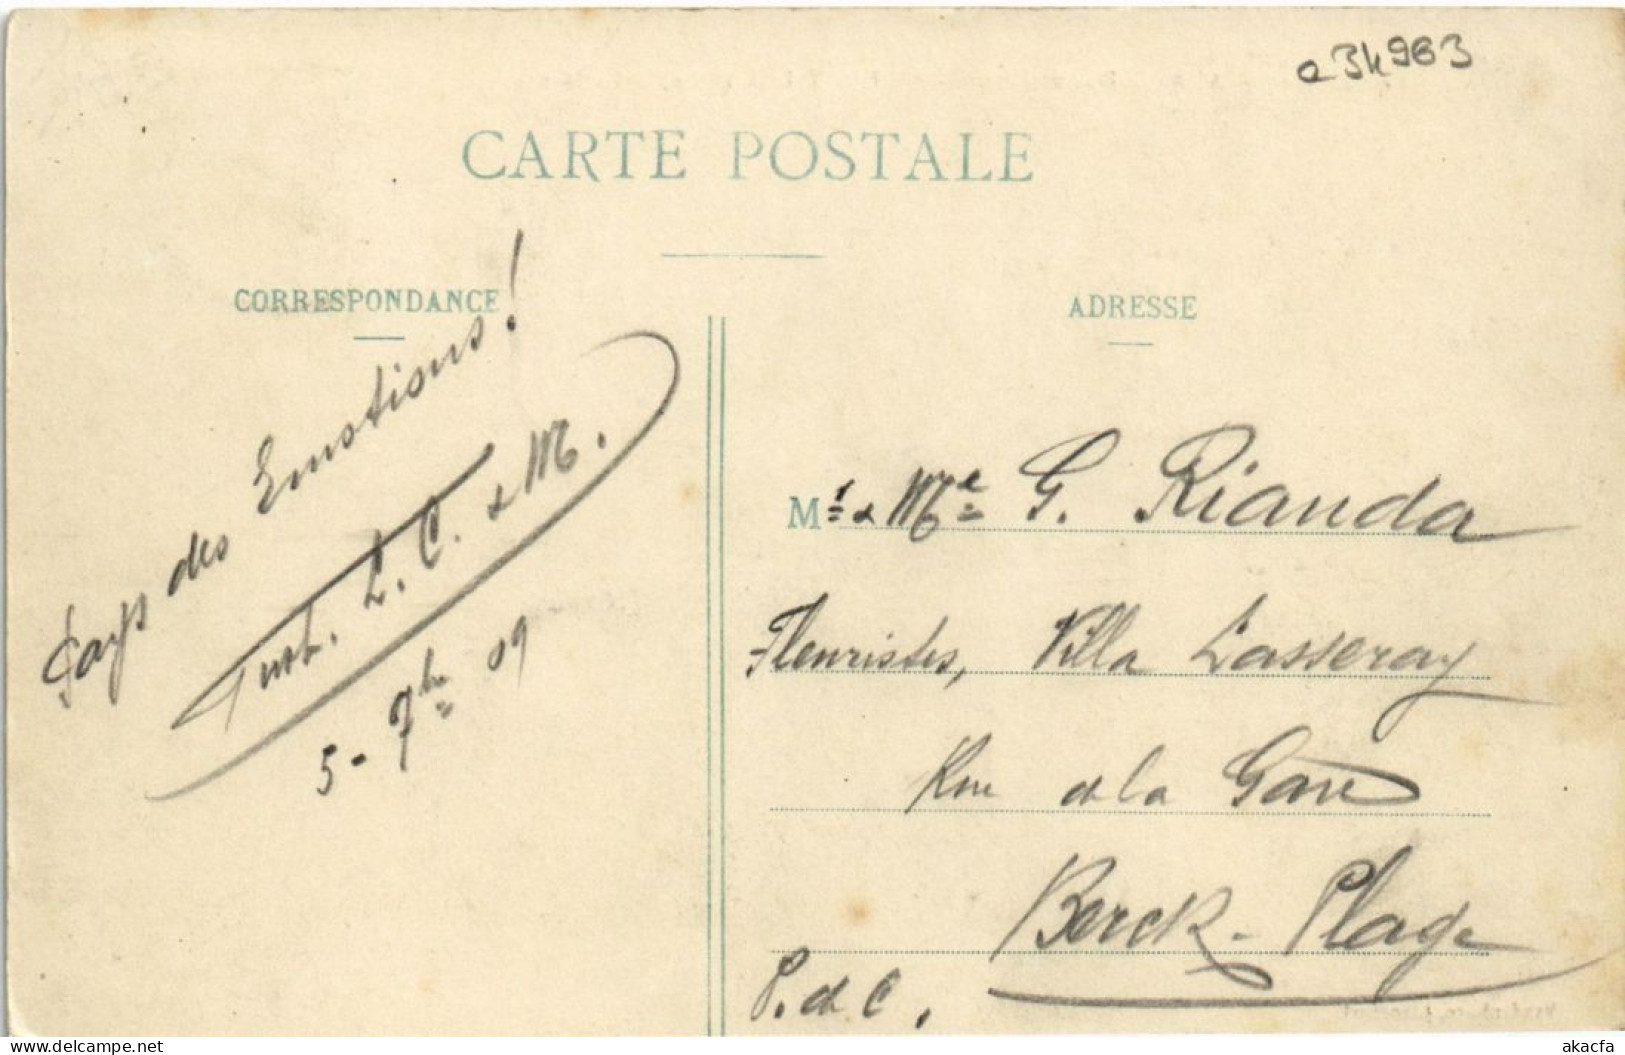 a34963
CARTE POSTALE
CORRESPONDANCE
Pays des Emotions!
L. C. & M.
5 - 7bre 09
ADRESSE
Mr & Mme G. Rianda
Fleuristes, Villa Lasseray
Rue de la Gare
Berck-Plage
P. de C.
akacfa